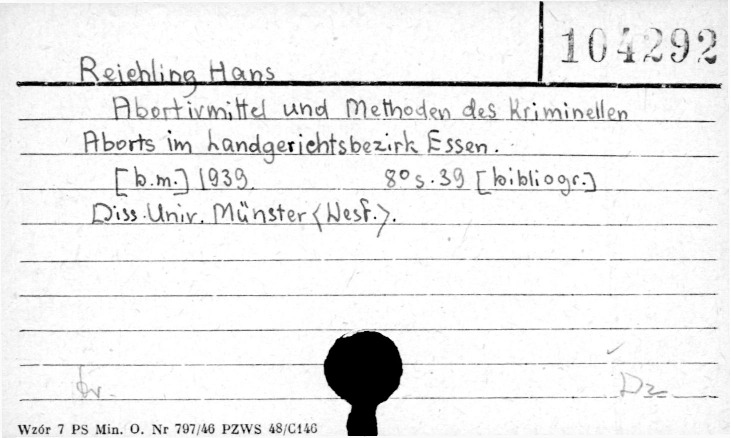 104292
Reichling Hans
Abortivmittel und Methoden des Kriminellen
Aborts im Landgerichtsbezirk Essen.
[b.m.] 1939. 8° s. 39 [bibliogr.]
Diss. Univ. Münster <Wesf.>.
Dz
Wzór 7 PS Min. O. Nr 797/46 PZWS 48/C146